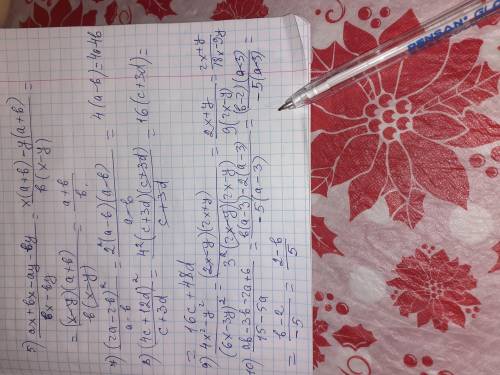 5) ax+bx-ay-by / bx-by = x(a+b)-y(a+b) / b(x-y) =
= (x-y)(a+b) / b(x-y) = a+b / b.
7) (2a-2b)² / a-b = 2²(a-b)(a-b) / a-b = 4(a-b)=4a-4b
8) (4c+12d)² / c+3d = 4²(c+3d)(c+3d) / c+3d = 16(c+3d)=
= 16c+48d
9) 4x²-y² / (6x-3y)² = (2x-y)(2x+y) / 3²(2x-y)(2x-y) = 2x+y / 9(2x-y) = 2x+y / 18x-9y
10) ab-3b-2a+6 / 15-5a = b(a-3)-2(a-3) / -5(a-3) = (b-2)(a-3) / -5(a-3) =
= b-2 / -5 = 2-b / 5
PENSAN